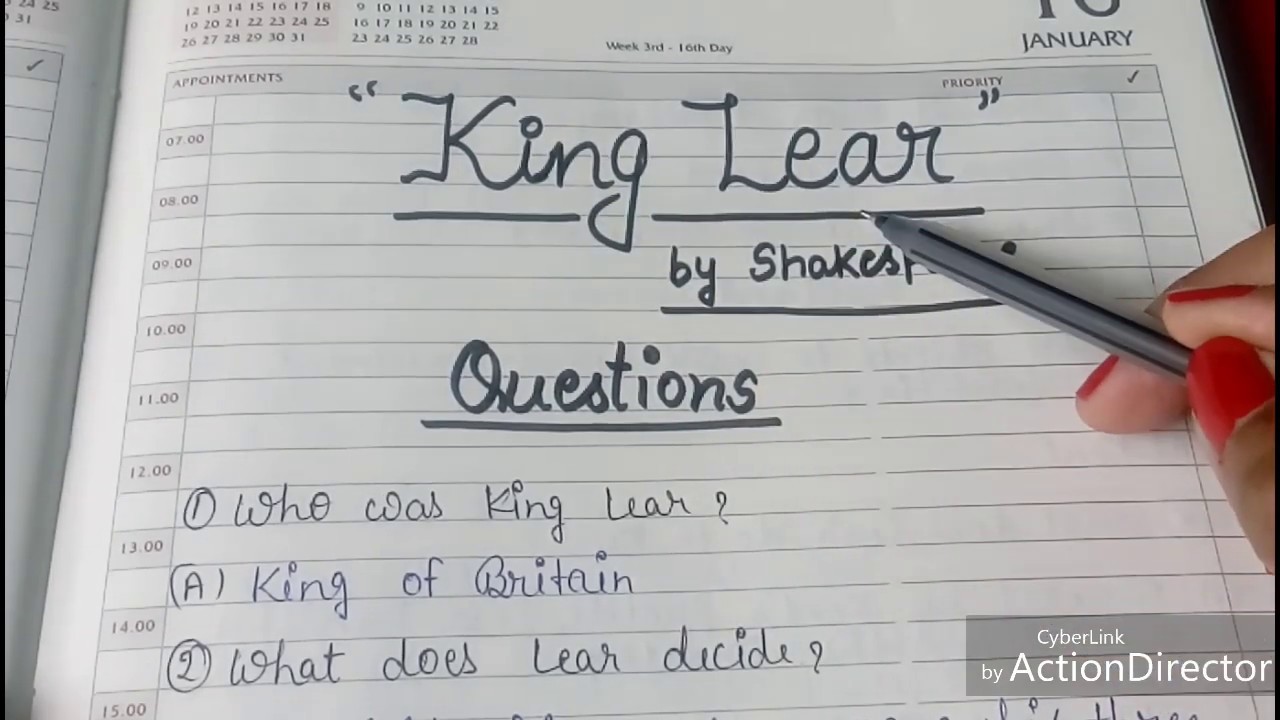 24 25
31
12 13 14 15 16 17 18
19 20 21 22 23 24 25
26 27 28 29 30 31
9 10 11 12 13 14 15
16 17 18 19 20 21 22
23 24 25 26 27 28
Week 3rd - 16th Day
JANUARY
APPOINTMENTS
PRIORITY
"King Lear"
by
Questions
① Who was King Lear?
(A) King of Britain
② What does Lear decide?
07.00
08.00
09.00
10.00
11.00
12.00
13.00
14.00
15.00
CyberLink
by ActionDirector